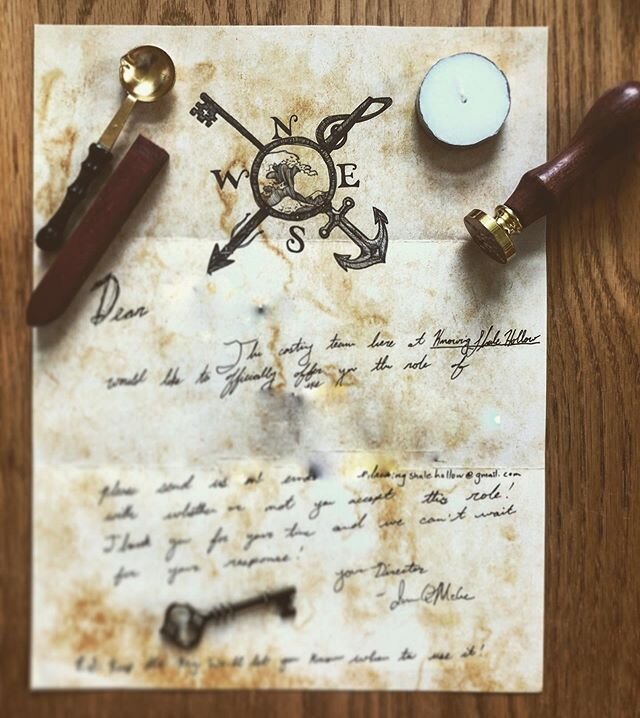 N
W E
S
Dear
The casting team here at Knowing Shale Hollow
would like to officially offer you the role of
please send us an email
with whether or not you accept this role!
Thank you for your time and we can't wait
for your response!
your Director
Keep the Key We'll let you know when to use it!